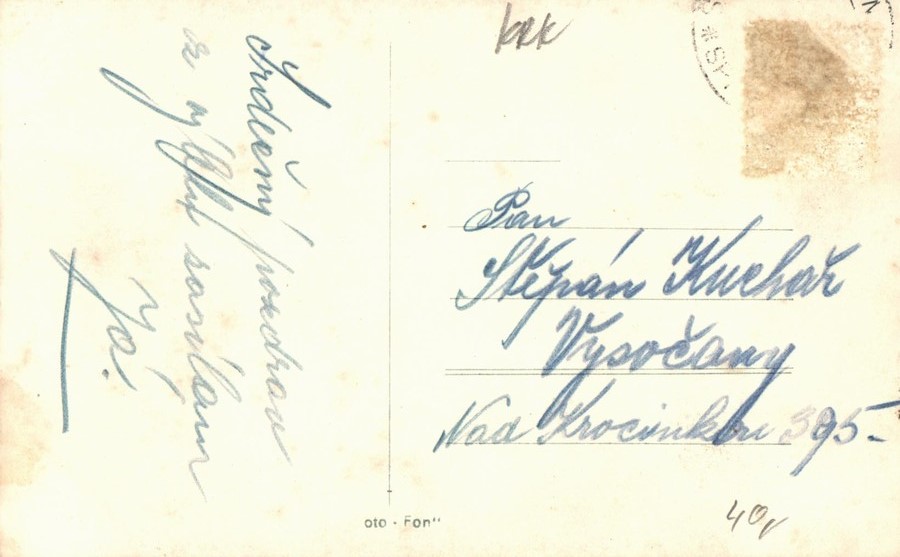 Srdečný pozdrav
z výletu zasílám
Já!
krk
* SY
Pan
Štěpán Kuchař
Vysočany
Nad Krocínkou 395-
oto · Fon"
40,